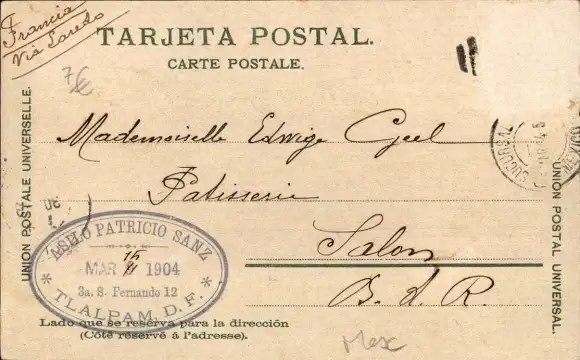 Francia
Via Laredo
TARJETA POSTAL.
CARTE POSTALE.
7€
UNION POSTALE UNIVERSELLE.
Mademoiselle Edwige Geel
Patisserie
Salon
B. d. R.
SUCURSAL
UNION POSTAL UNIVERSAL.
ASILO PATRICIO SANZ
MAR 15 1904
3a. S. Fernando 12
TLALPAM, D. F.
Lado que se reserva para la dirección
(Côté réservé à l'adresse).
Mex